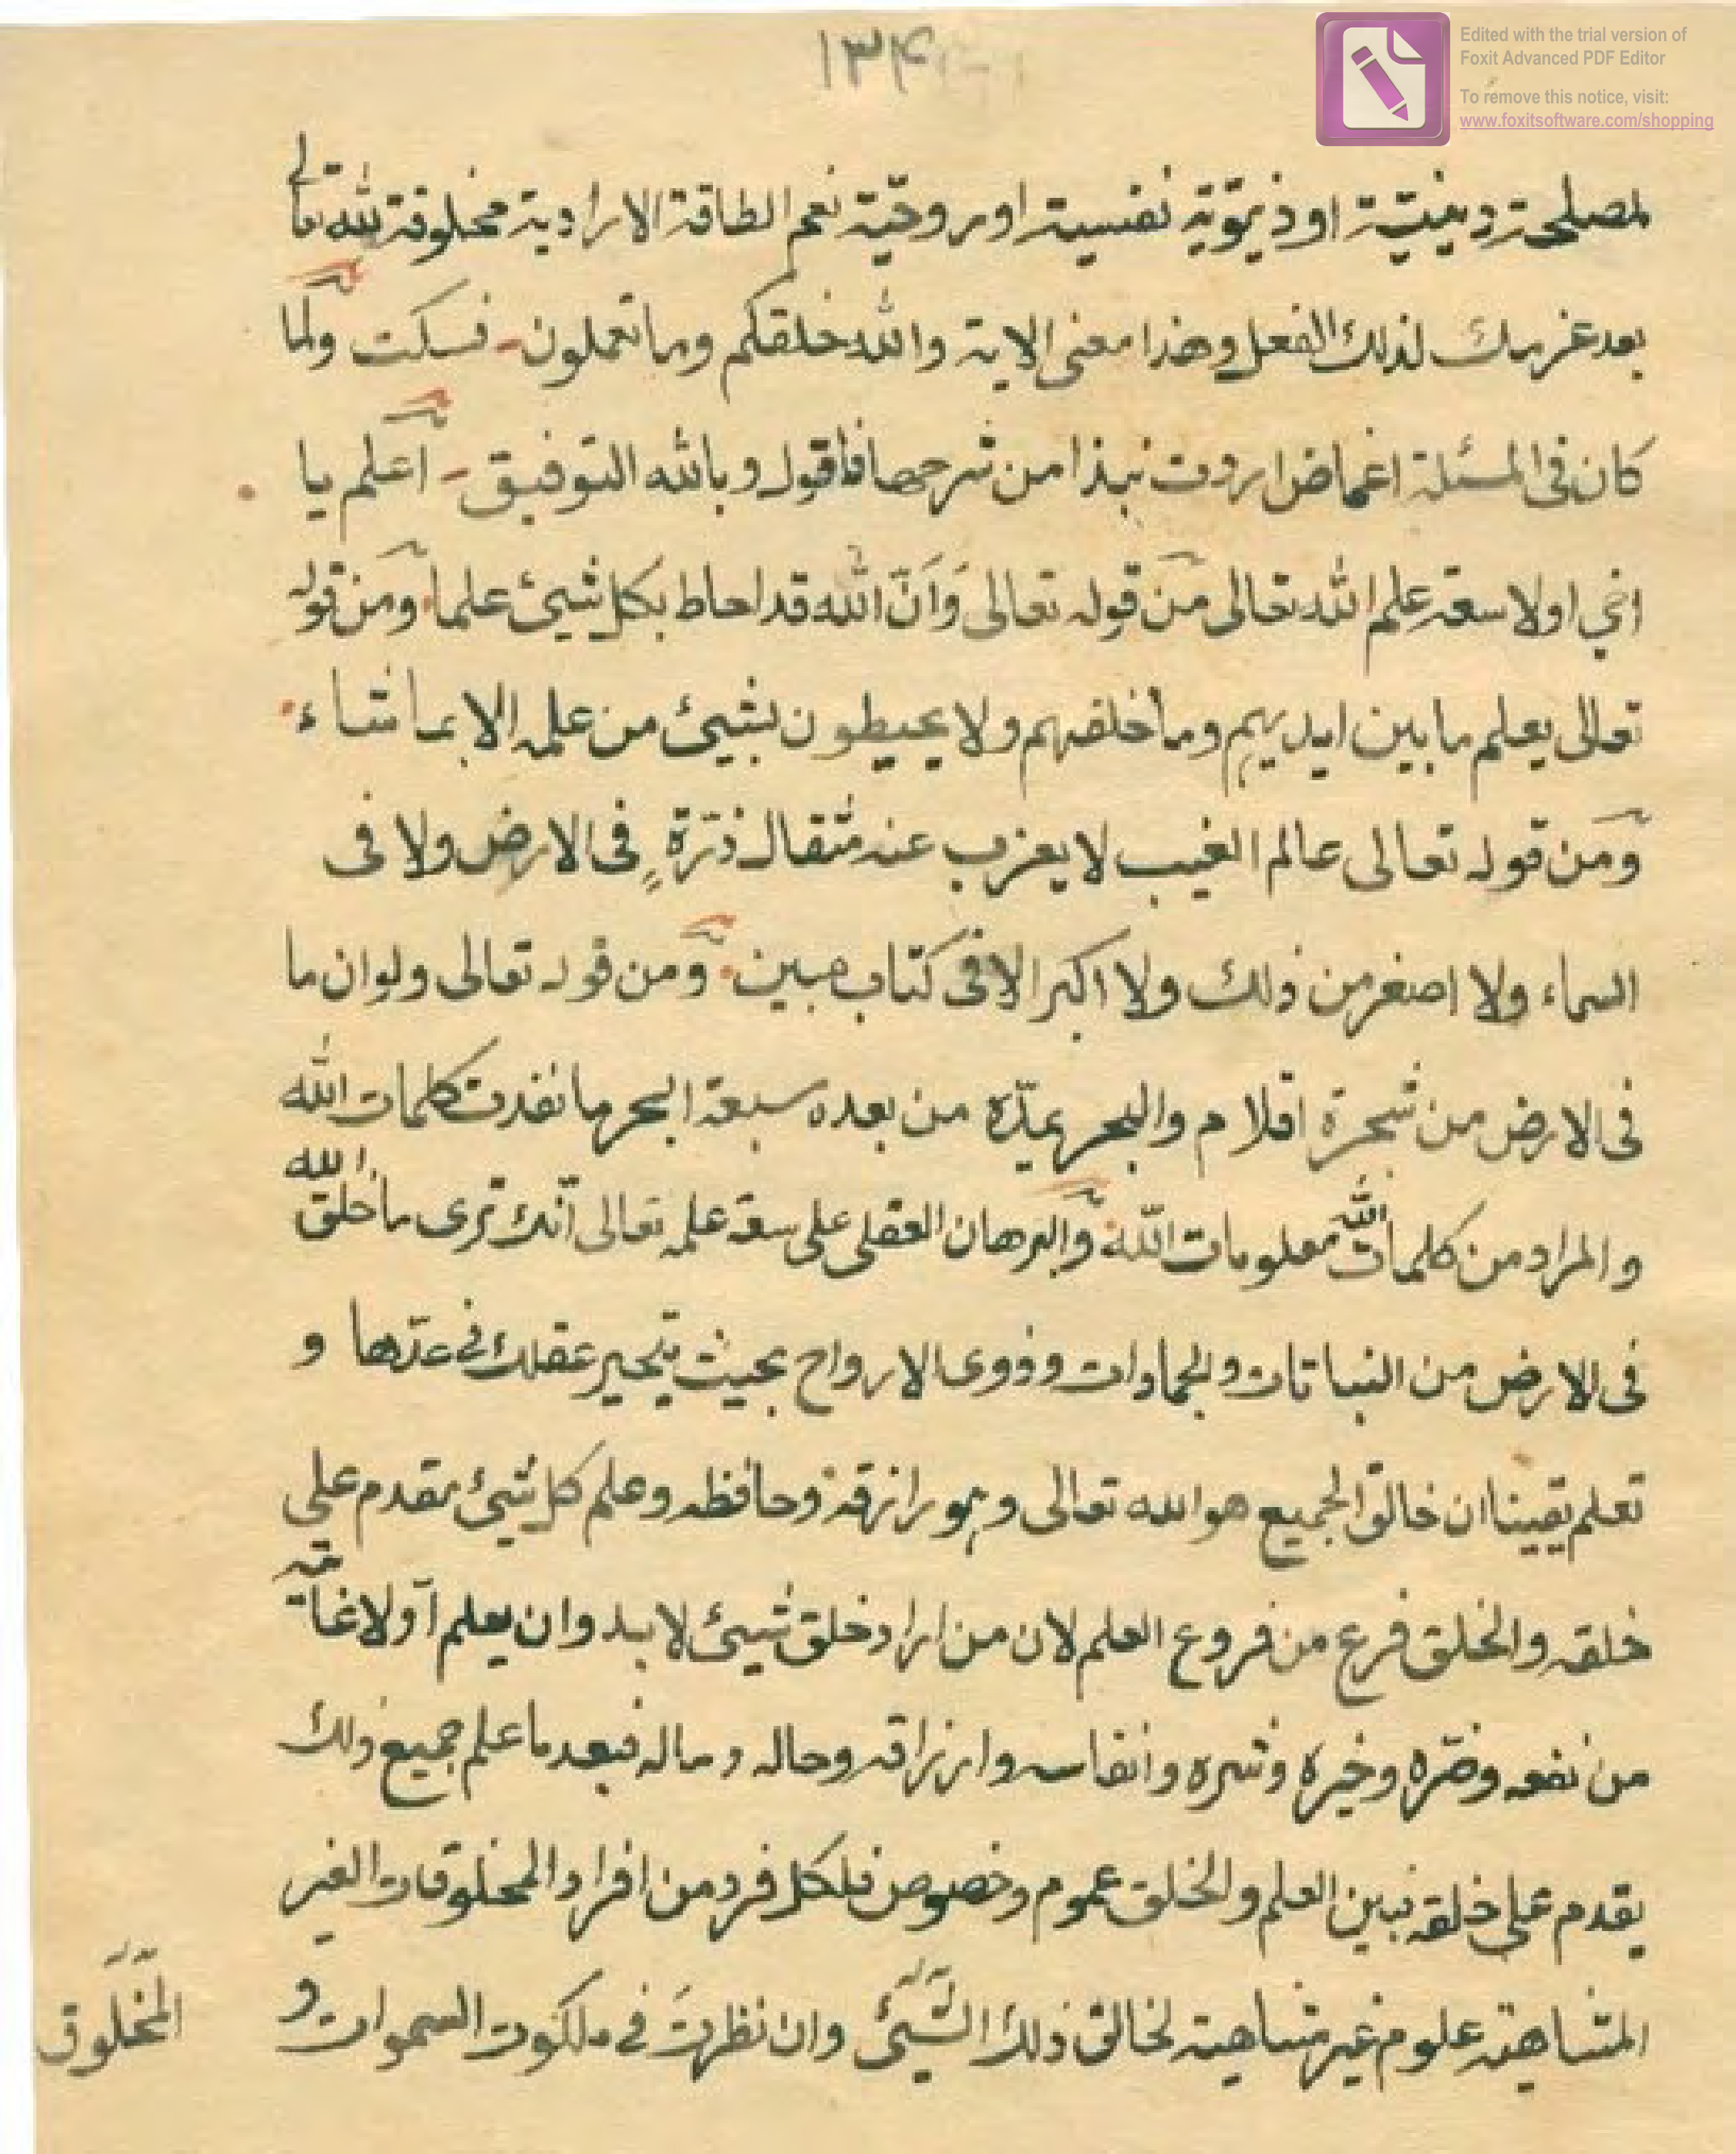 ۱۳۴
Edited with the trial version of
Foxit Advanced PDF Editor
To remove this notice, visit:
www.foxitsoftware.com/shopping
لمصلحة دينيّة او ذيمّويّة نفسية او روحيّة نعم الطاقة الارادية مخلوقة لله تعالى
بعد عزمك لذلك الفعل وهذا معنى الاية والله خلقكم وما تعملون - فسكت ولما
كان فى المسئلة اغماض اردت نبذا من شرحها فاقول وبالله التوفيق - اعلم يا
اخي اولا سعة علم الله تعالى من قوله تعالى وَاَنّ الله قد احاط بكل شيئ علما ومن قوله
تعالى يعلم ما بين ايديهم وما خلفهم ولا يحيطون بشيئ من علمه الا بما شاء
ومن قوله تعالى عالم الغيب لا يعزب عنه مثقال ذرّةٍ فى الارض ولا فى
السماء ولا اصغر من ذلك ولا اكبر الا فى كتاب مبين ومن قوله تعالى ولو ان ما
فى الارض من شجرة اقلام والبحر يمدّه من بعده سبعة ابحر ما نفدت كلمات الله
والمراد من كلمات الله معلومات الله والبرهان العقلى على سعة علمه تعالى انك ترى ما خلق الله
فى الارض من النباتات والجمادات وذوى الارواح بحيث يتحير عقلك في عدّها و
تعلم يقينا ان خالق الجميع هو الله تعالى وهو رازقه وحافظه وعلم كل شيئ مقدم على
خلقه والخلق فرع من فروع العلم لان من اراد خلق شيئ لابد وان يعلم اولا غايته
من نفعه وضرّه وخيره وشره وانفاسه وارزاقه وحاله وماله فبعد ما علم جميع ذلك
يقدم على خلقه فبين العلم والخلق عموم وخصوص فلكل فرد من افراد المخلوقات الغير
المتناهية علوم غير متناهية لخالق ذلك الشَّيئ وان نظرتَ في ملكوت السموات و
المخلوق